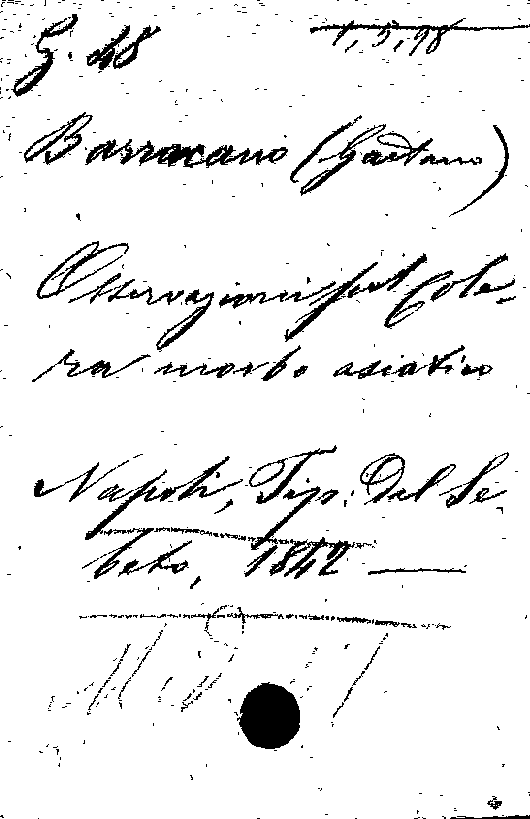 G. 48 1,5,98
Barracano (Gaetano)
Osservazioni sul Cole-
ra morbo asiatico
Napoli, Tip: Del Se
beto, 1842